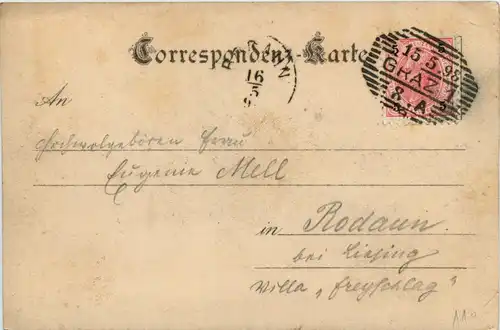 Correspondenz-Karte
5 15.5.98
GRAZ 1
8. A 5
16
5
An
Hochwolgeboren Frau
Eugenie Mell
in Rodaun
bei Liesing
Villa „Freyschlag"